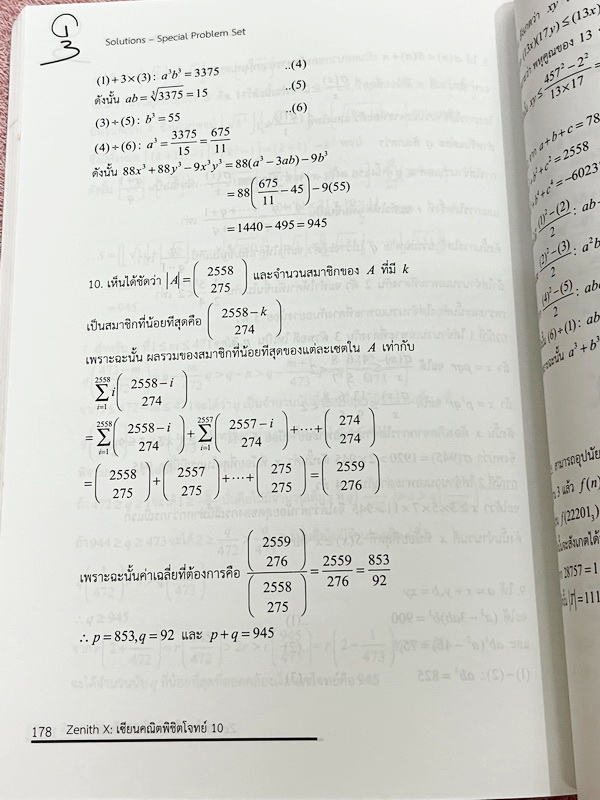 Solutions – Special Problem Set
(1) + 3 × (3) : a³b³ = 3375 ..(4)
ดังนั้น ab = ∛3375 = 15 ..(5)
(3) ÷ (5) : b³ = 55 ..(6)
(4) ÷ (6) : a³ = 3375/15 = 675/11
ดังนั้น 88x³ + 88y³ − 9x³y³ = 88(a³ − 3ab) − 9b³
= 88(675/11 − 45) − 9(55)
= 1440 − 495 = 945
10. เห็นได้ชัดว่า |A| = (2558 275) และจำนวนสมาชิกของ A ที่มี k
เป็นสมาชิกที่น้อยที่สุดคือ (2558 − k 274)
เพราะฉะนั้น ผลรวมของสมาชิกที่น้อยที่สุดของแต่ละเซตใน A เท่ากับ
∑_{i=1}^{2558} i (2558 − i 274)
= ∑_{i=1}^{2558} (2558 − i 274) + ∑_{i=1}^{2557} (2557 − i 274) + ⋯ + (274 274)
= (2558 275) + (2557 275) + ⋯ + (275 275) = (2559 276)
เพราะฉะนั้นค่าเฉลี่ยที่ต้องการคือ (2559 276)/(2558 275) = 2559/276 = 853/92
∴ p = 853, q = 92 และ p + q = 945
178 Zenith X: เซียนคณิตพิชิตโจทย์ 10
(13x)(17y) ≤ (13x
xy ≤ 457² − 2²/13 × 17
a + b + c = 78
+ c² = 2558
(1)² − (2)/2 : ab
(2)² − (3)/2 : a²b
(4)² − (5)/2 : ab
(6) ÷ (1) : ab
a³ + b³
สามารถอุปนัย
3 แล้ว f(n)
f(22201₃)
28757 = 1